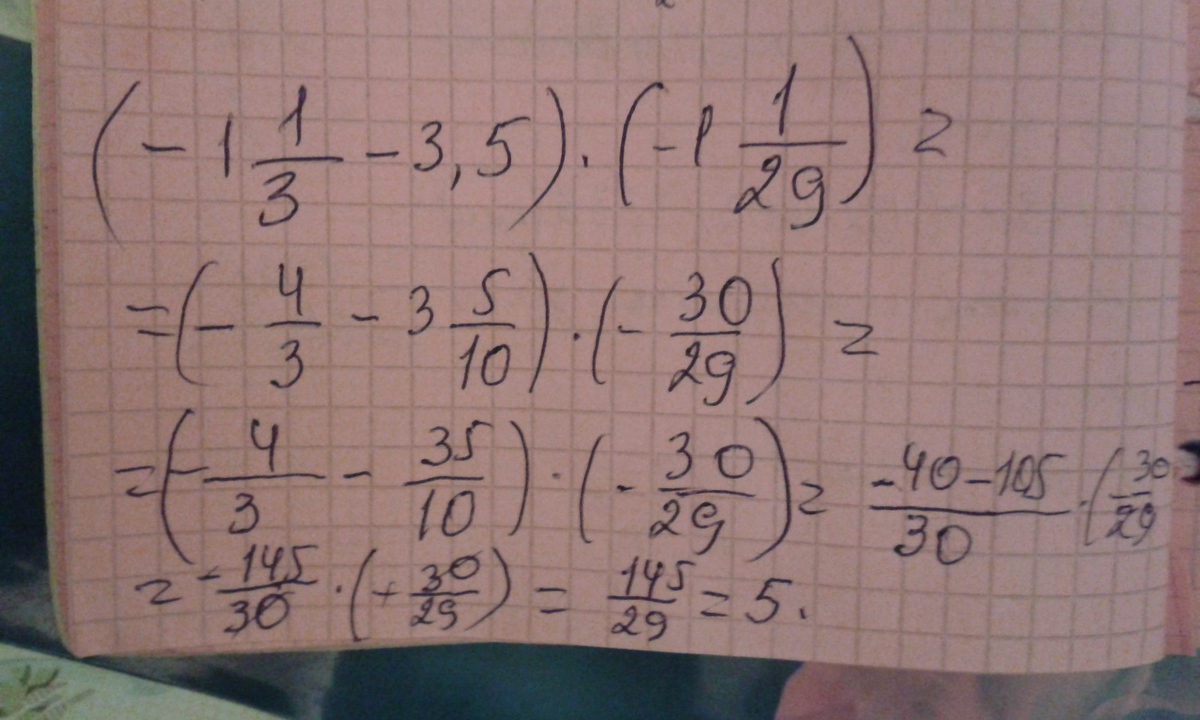 (-1 1/3 - 3,5) · (-1 1/29) =
= (- 4/3 - 3 5/10) · (- 30/29) =
= (- 4/3 - 35/10) · (- 30/29) = (-40-105)/30 · (- 30/29
= - 145/30 · (- 30/29) = 145/29 = 5.